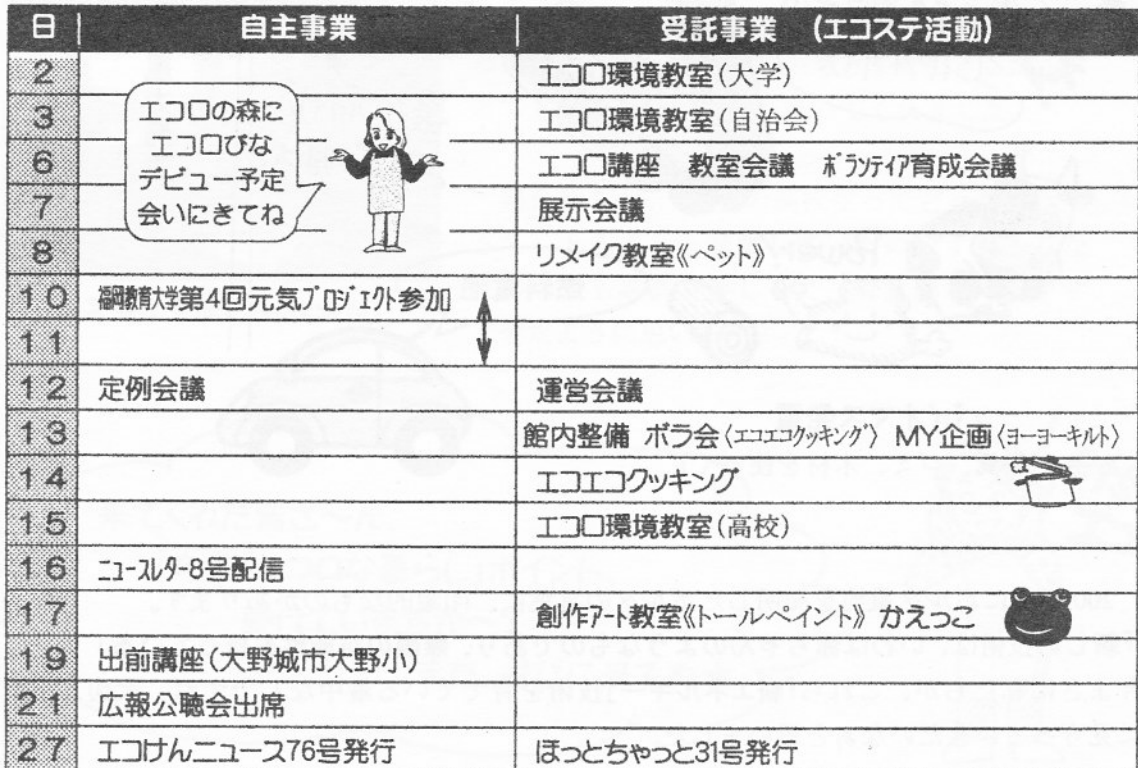 日 自主事業 受託事業 (エコステ活動)
2 エコロ環境教室(大学)
3 エコロ環境教室(自治会)
6 エコロ講座 教室会議 ボランティア育成会議
7 展示会議
8 リメイク教室《ペット》
エコロの森に
エコロびな
デビュー予定
会いにきてね
10 福岡教育大学第4回元気プロジェクト参加
11
12 定例会議 運営会議
13 館内整備 ボラ会〈エコエコクッキング〉 MY企画〈ヨーヨーキルト〉
14 エコエコクッキング
15 エコロ環境教室(高校)
16 ニュースレター8号配信
17 創作アート教室《トールペイント》 かえっこ
19 出前講座(大野城市大野小)
21 広報公聴会出席
27 エコけんニュース76号発行 ほっとちゃっと31号発行